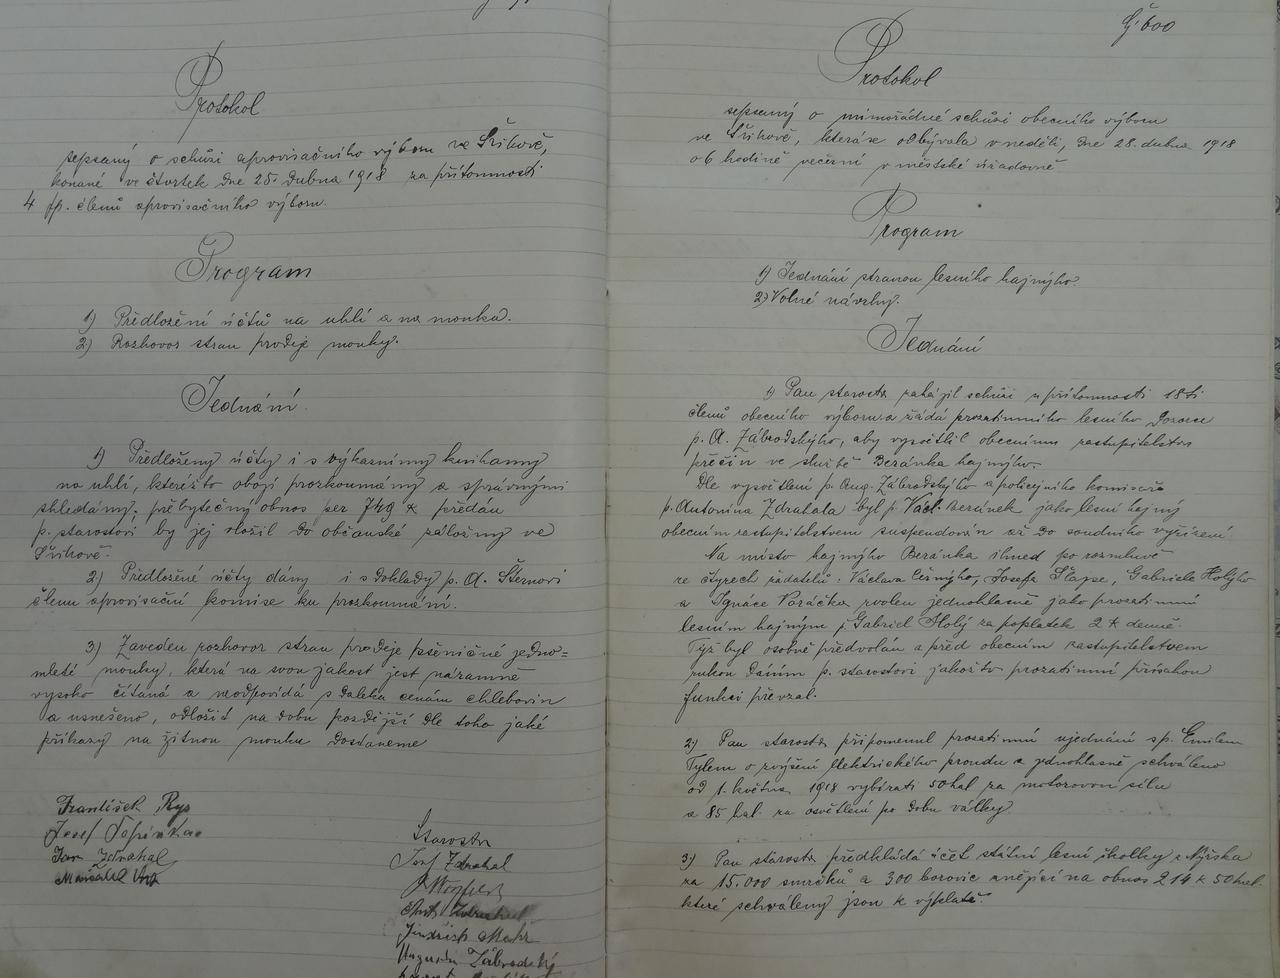 Protokol
sepsaný o schůzi aprovisačního výboru ve Švihově,
konané ve čtvrtek dne 25. dubna 1918 za přítomnosti
4 pp. členů aprovisačního výboru.
Program
1) Předložení účtů na uhlí a na mouku.
2) Rozhovor stran prodeje mouky.
Jednání.
1) Předloženy účty i s výkazními knihami
na uhlí, kteréžto obojí prozkoumány a správnými
shledány. přebytečný obnos per 749 K předán
p. starostovi by jej vložil do občanské záložny ve
Švihově.
2) Předložené účty dány i s doklady p. A. Šternovi
členu aprovisační komise ku prozkoumání.
3) Zaveden rozhovor stran prodeje pšeničné jedno=
mleté mouky, která na svou jakost jest náramně
vysoko čítaná a neodpovídá s daleka cenám chlebovin
a usnešeno, odložit na dobu pozdější dle toho jaké
příkazy na žitnou mouku dostaneme
František Rys
Josef
Jan Zdrahal
Starosta
Josef Zdrahal
Ant. Zdrahal
Jindřich
Augustin Zábrodský
Čj 600
Protokol
sepsaný o mimořádné schůzi obecního výboru
ve Švihově, která se odbývala v neděli, dne 28. dubna 1918
o 6 hodině večerní v městské úřadovně
Program
1) Jednání stranou lesního hajného.
2) Volné návrhy.
Jednání
1) Pan starosta zahájil schůzi u přítomnosti 18ti
členů obecního výboru a žádá prozatimního lesního dozorce
p. A. Zábrodského, aby vysvětlil obecnímu zastupitelstvu
přečin ve službě Beránka hajného.
Dle vysvětlení p. Aug. Zábrodského a policejního komisaře
p. Antonína Zdrahala byl p. Václ. Beránek jako lesní hajný
obecním zastupitelstvem suspendován až do soudního vyřízení.
Na místo hajného Beránka ihned po rozmluvě
ze čtyrech žadatelů: Václava Černýho, Josefa Šlajse, Gabriele Holýho
a Ignáce Voráčka zvolen jednohlasně jako prozatimní
lesním hajným p. Gabriel Holý za poplatek 2 K denně.
Týž byl osobně předvolán a před obecním zastupitelstvem
rukou dáním p. starostovi jakožto prozatimní přísahou
funkci převzal.
2) Pan starosta připomenul prozatimní ujednání s p. Emilem
Tylem o zvýšení elektrického proudu a jednohlasně schváleno
od 1. května 1918 vybírati 50 hal za motorovou sílu
a 85 hal. za osvětlení po dobu války.
3) Pan starosta předkládá účet státní lesní školky z Nýrska
za 15.000 smrčků a 300 borovic znějící na obnos 214 K 50 hal.
které schváleny jsou k výplatě.